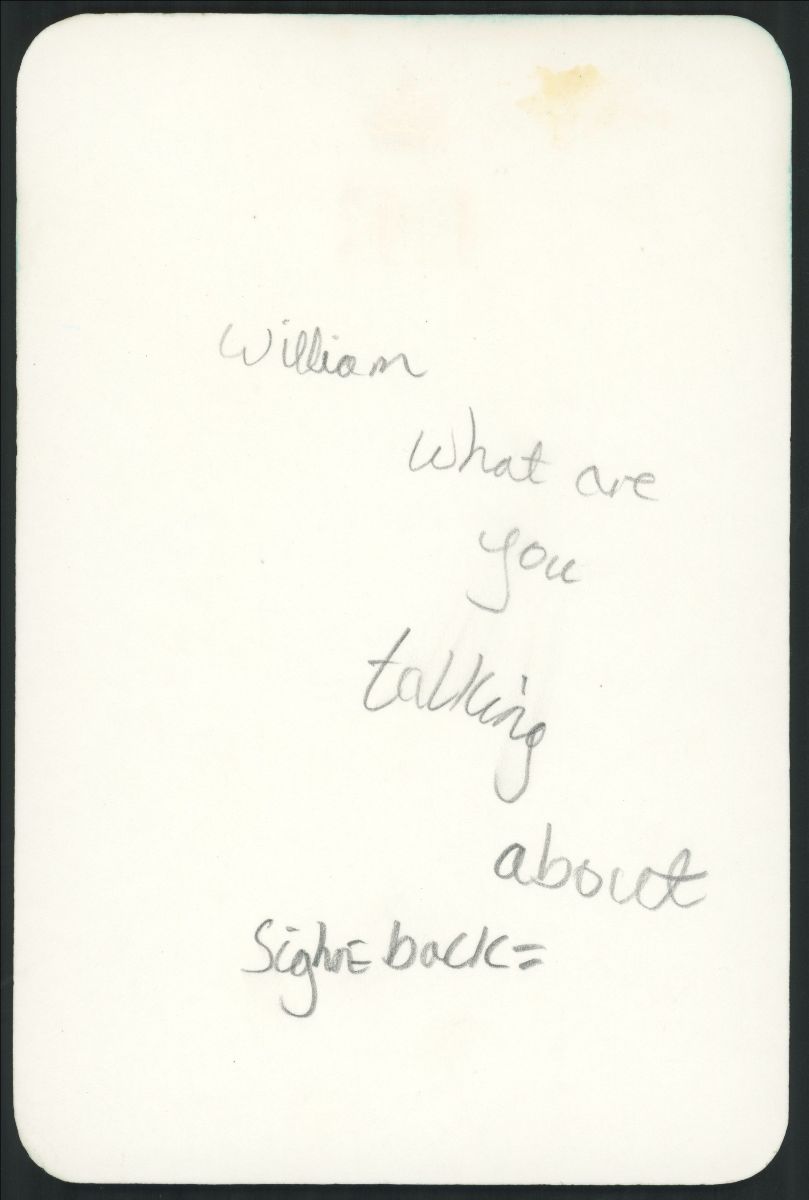 William
what are
you
talking
about
back=